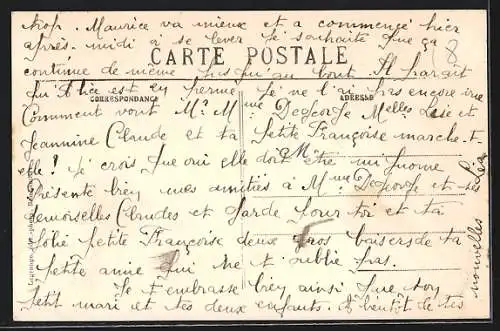 trop. Maurice va mieux et a commencé hier
après-midi à se lever. Je souhaite que ça
CARTE POSTALE
continue de même jusqu'au bout. Il paraît
qu'Alice est en permie. Je ne l'ai pas encore vue
CORRESPONDANCE
ADRESSE
Comment vont Mr. Mme Degeorge Melles
Jeannine Claude et ta petite Françoise marche-t
elle? Je crois que oui elle doit être mignonne
M
Présente bien mes amitiés à Mme Degeorge et les
demoiselles Claudes et garde pour toi et ta
jolie petite Françoise deux gros baisers de ta
petite amie qui ne t'oublie pas.
Je t'embrasse bien ainsi que ton
petit mari et tes deux enfants. A bientôt de tes
nouvelles
8